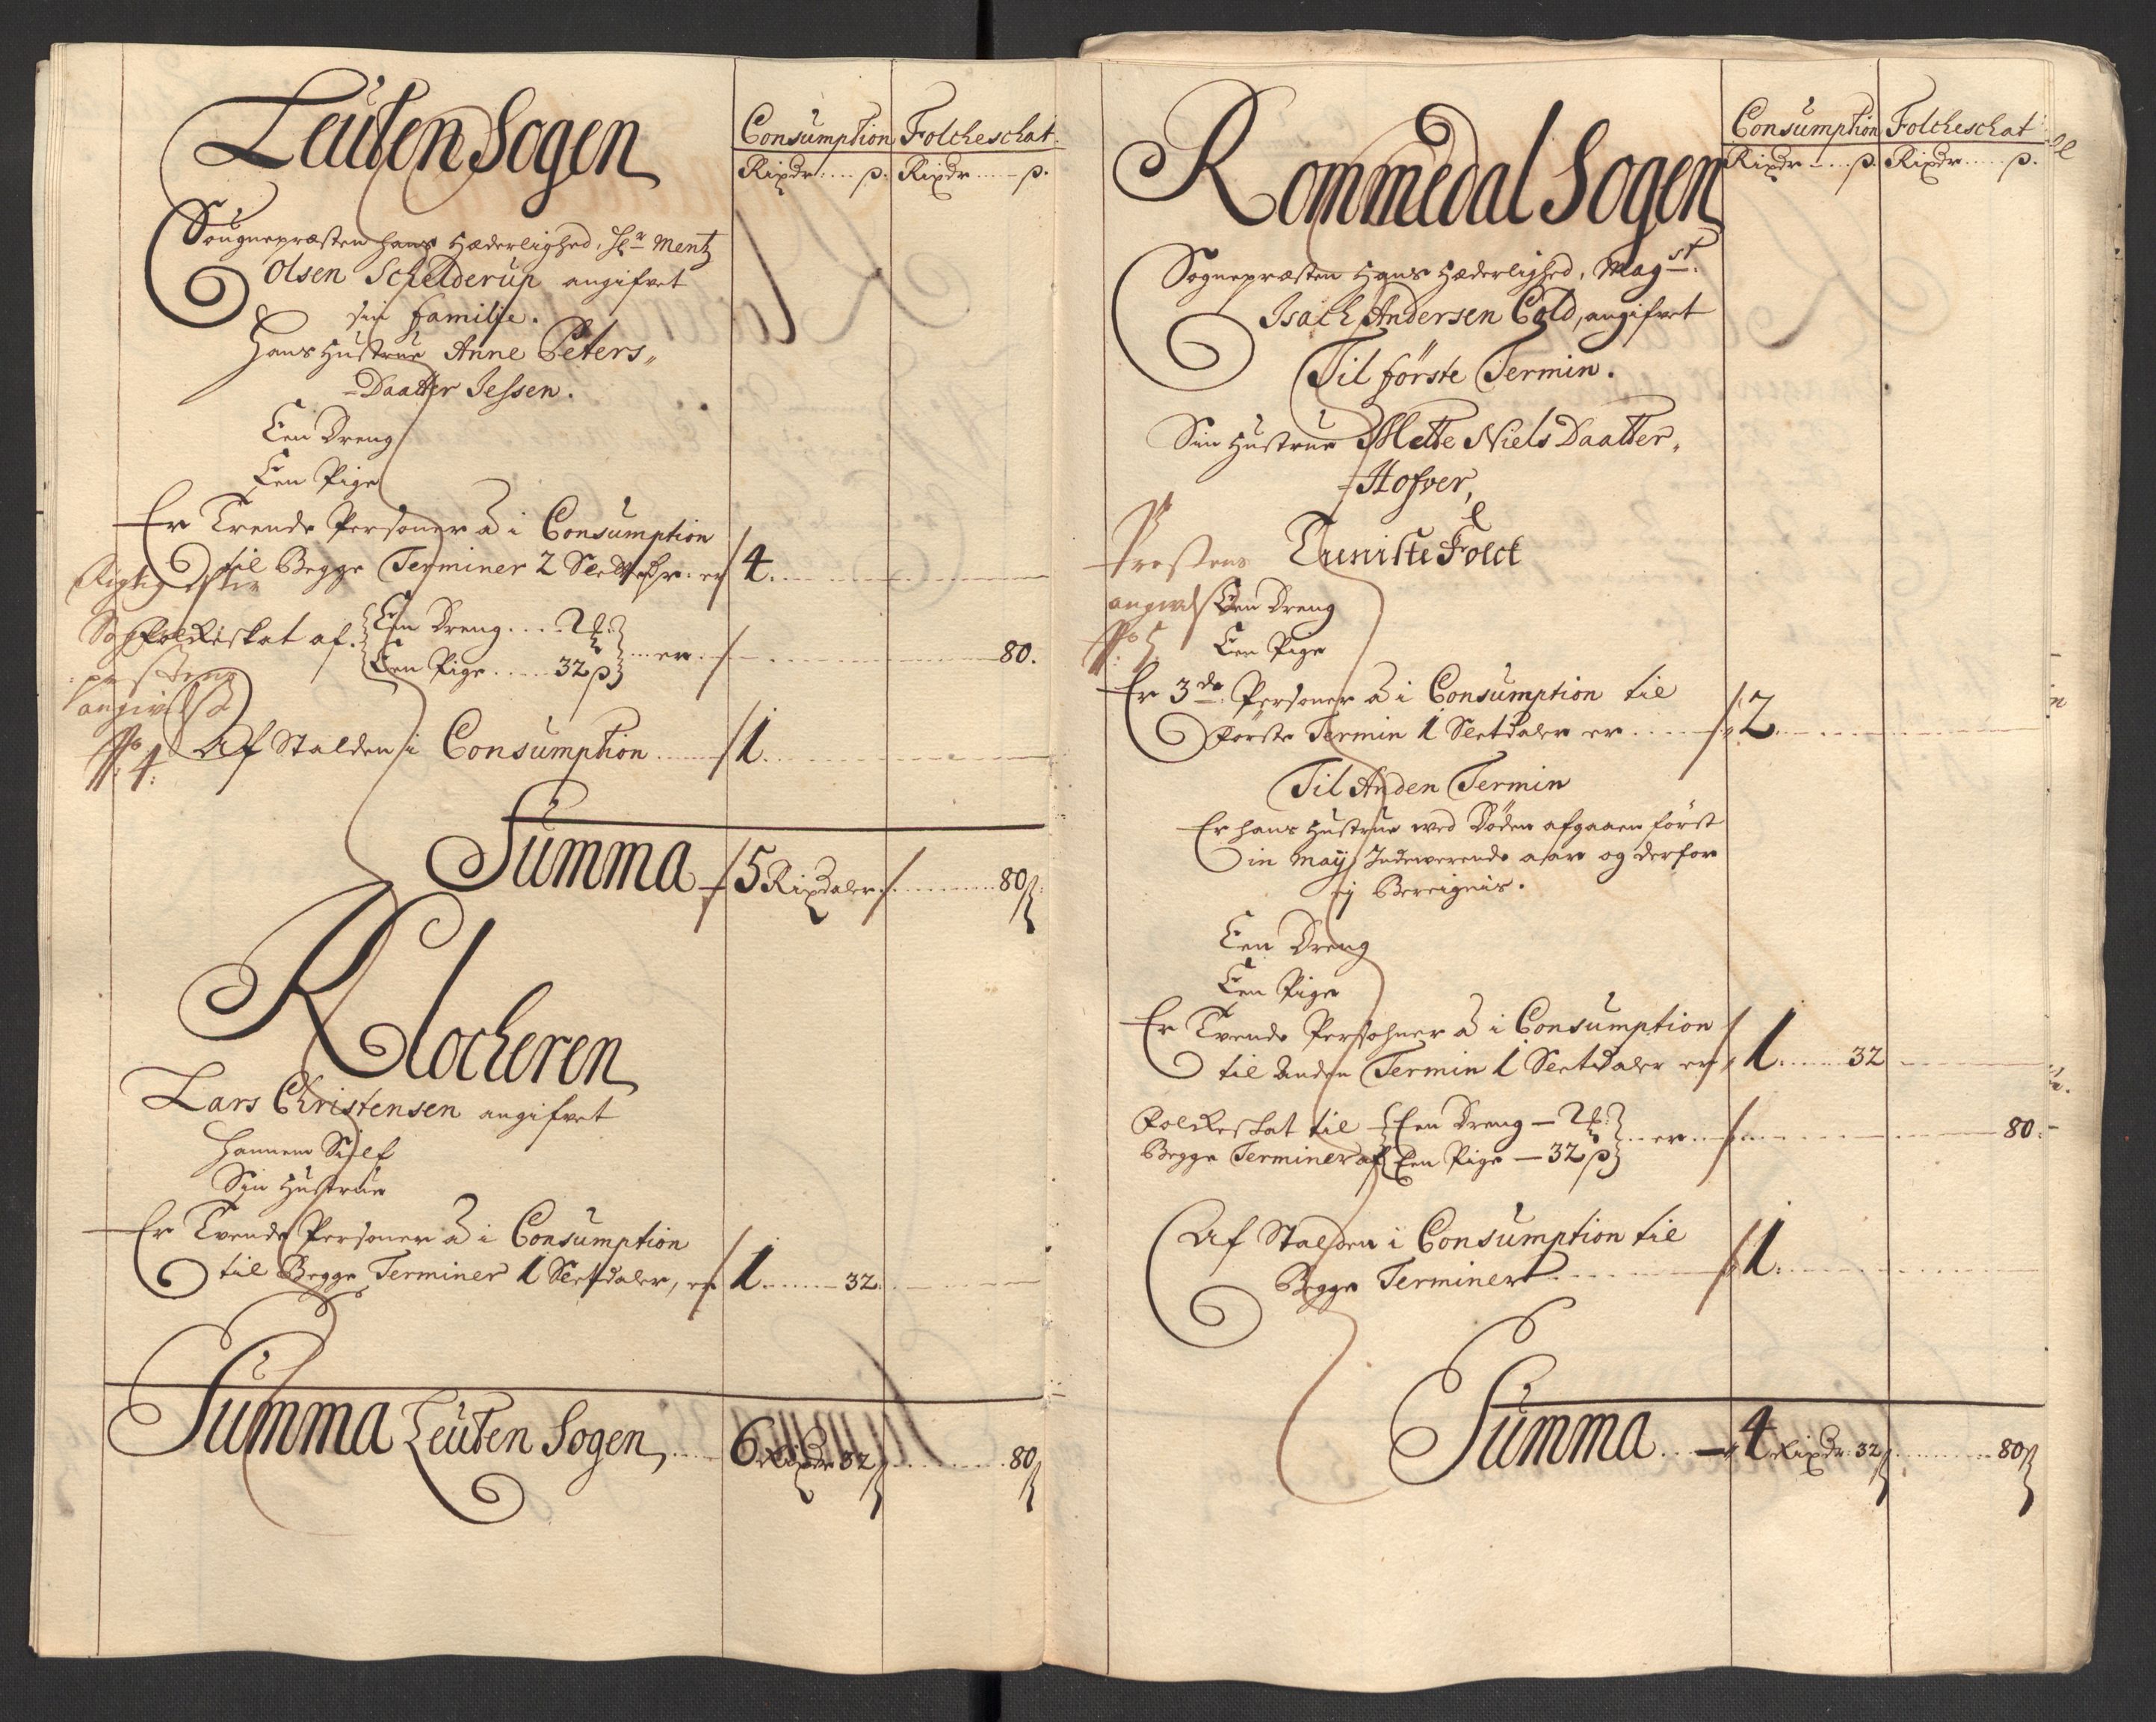 Leuten Sogen
Consumption Folcheschat
Rixdr .... ß. Rixdr ..... ß.
Sougnepræsten hans Hæderlighed, Hr Mentz
Olsen Schelderup angifvet
sin familje.
Hans Hustrue Anne Peters„
-Daatter Jessen.
Een Dreng
Een Pige
Er Trende Personer a i Consumption
til Begge Terminer 2 Sletdr. er 4.
Rigtig efter
Sog
Folkeskat af. Een Dreng .... 2
Een Pige ..... 32 ß ... er 80.
prestens
angivelse
No 4:
Af Stalden i Consumption 1.
Summa 5 Rixdaler 80 ß
Klocheren
Lars Christensen angifvet
Hannem Self
Sin Hustrue
Er Tvende Personer a i Consumption
til Begge Terminer 1 Sletdaler, er 1. 32.
Summa Leuten Sogen, 6 Rixdr 32 ß 80 ß
Rommedal Sogen
Consumption Folcheschat
Rixdr .... ß. Rixdr ..... ß.
Sognepræsten Hans Hæderlighed, Magst.
Isach Andersen Cold, angifvet
Til förste Termin.
Sin Hustrue Mette Niels Daatter,
-Hofver,
Prestens
Tieniste Folck
angivelse
Een Dreng
No 5
Een Pige
Er 3de Personer a i Consumption til
Förste Termin 1 Sletdaler er 2.
Til Anden Termin
Er hans Hustrue ved Döden afgaaen först
in Maij Indeverende aar og derfor
ej Beregnis.
Een Dreng
Een Pige
Er Tvende Persohner a i Consumption
til Anden Termin 1 Sletdaler er 1. 32
Folkeskat til Een Dreng — 2
Begge Terminer af Een Pige — 32 ß .. er 80.
Af Stalden i Consumption til
Begge Terminer 1.
Summa 4 Rixdr: 32 ß 80 ß